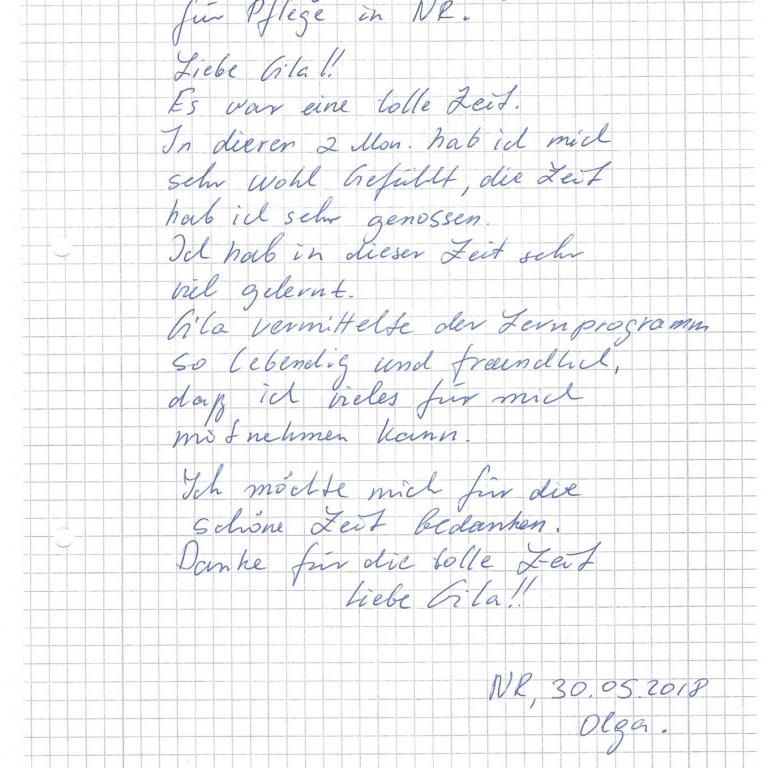 für Pflege in NR.
Liebe Gila!!
Es war eine tolle Zeit.
In dieser 2 Mon. hab ich mich
sehr wohl Gefühlt, die Zeit
hab ich sehr genossen.
Ich hab in dieser Zeit sehr
viel gelernt.
Gila vermittelte der Lernprogramm
so lebendig und fraendlich,
daß ich vieles für mich
mitnehmen kann.
Ich möchte mich für die
schöne Zeit bedanken.
Danke für die tolle Zeit
Liebe Gila!!
NR, 30.05.2018
Olga.